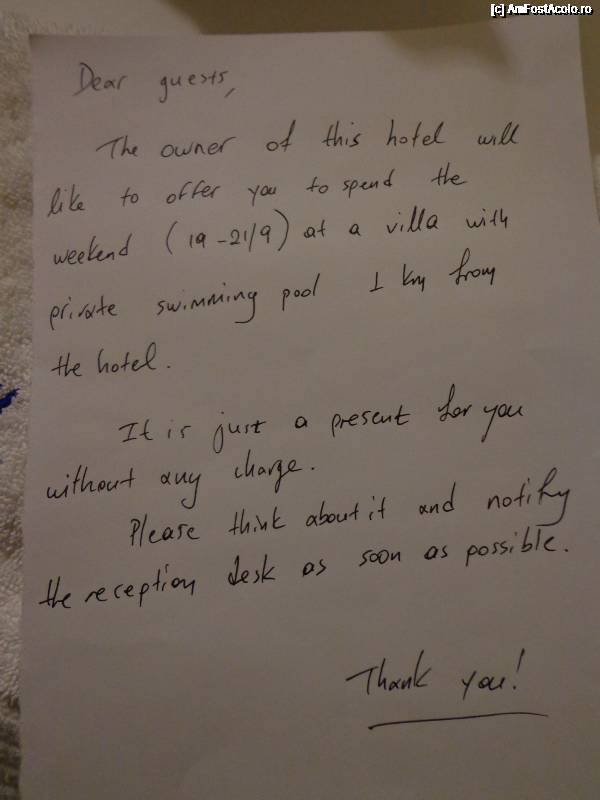 [c] AmFostAcolo.ro
Dear guests,
The owner of this hotel will
like to offer you to spend the
weekend (19-21/9) at a villa with
private swimming pool 1 km from
the hotel.
It is just a present for you
without any charge.
Please think about it and notify
the reception desk as soon as possible.
Thank you!